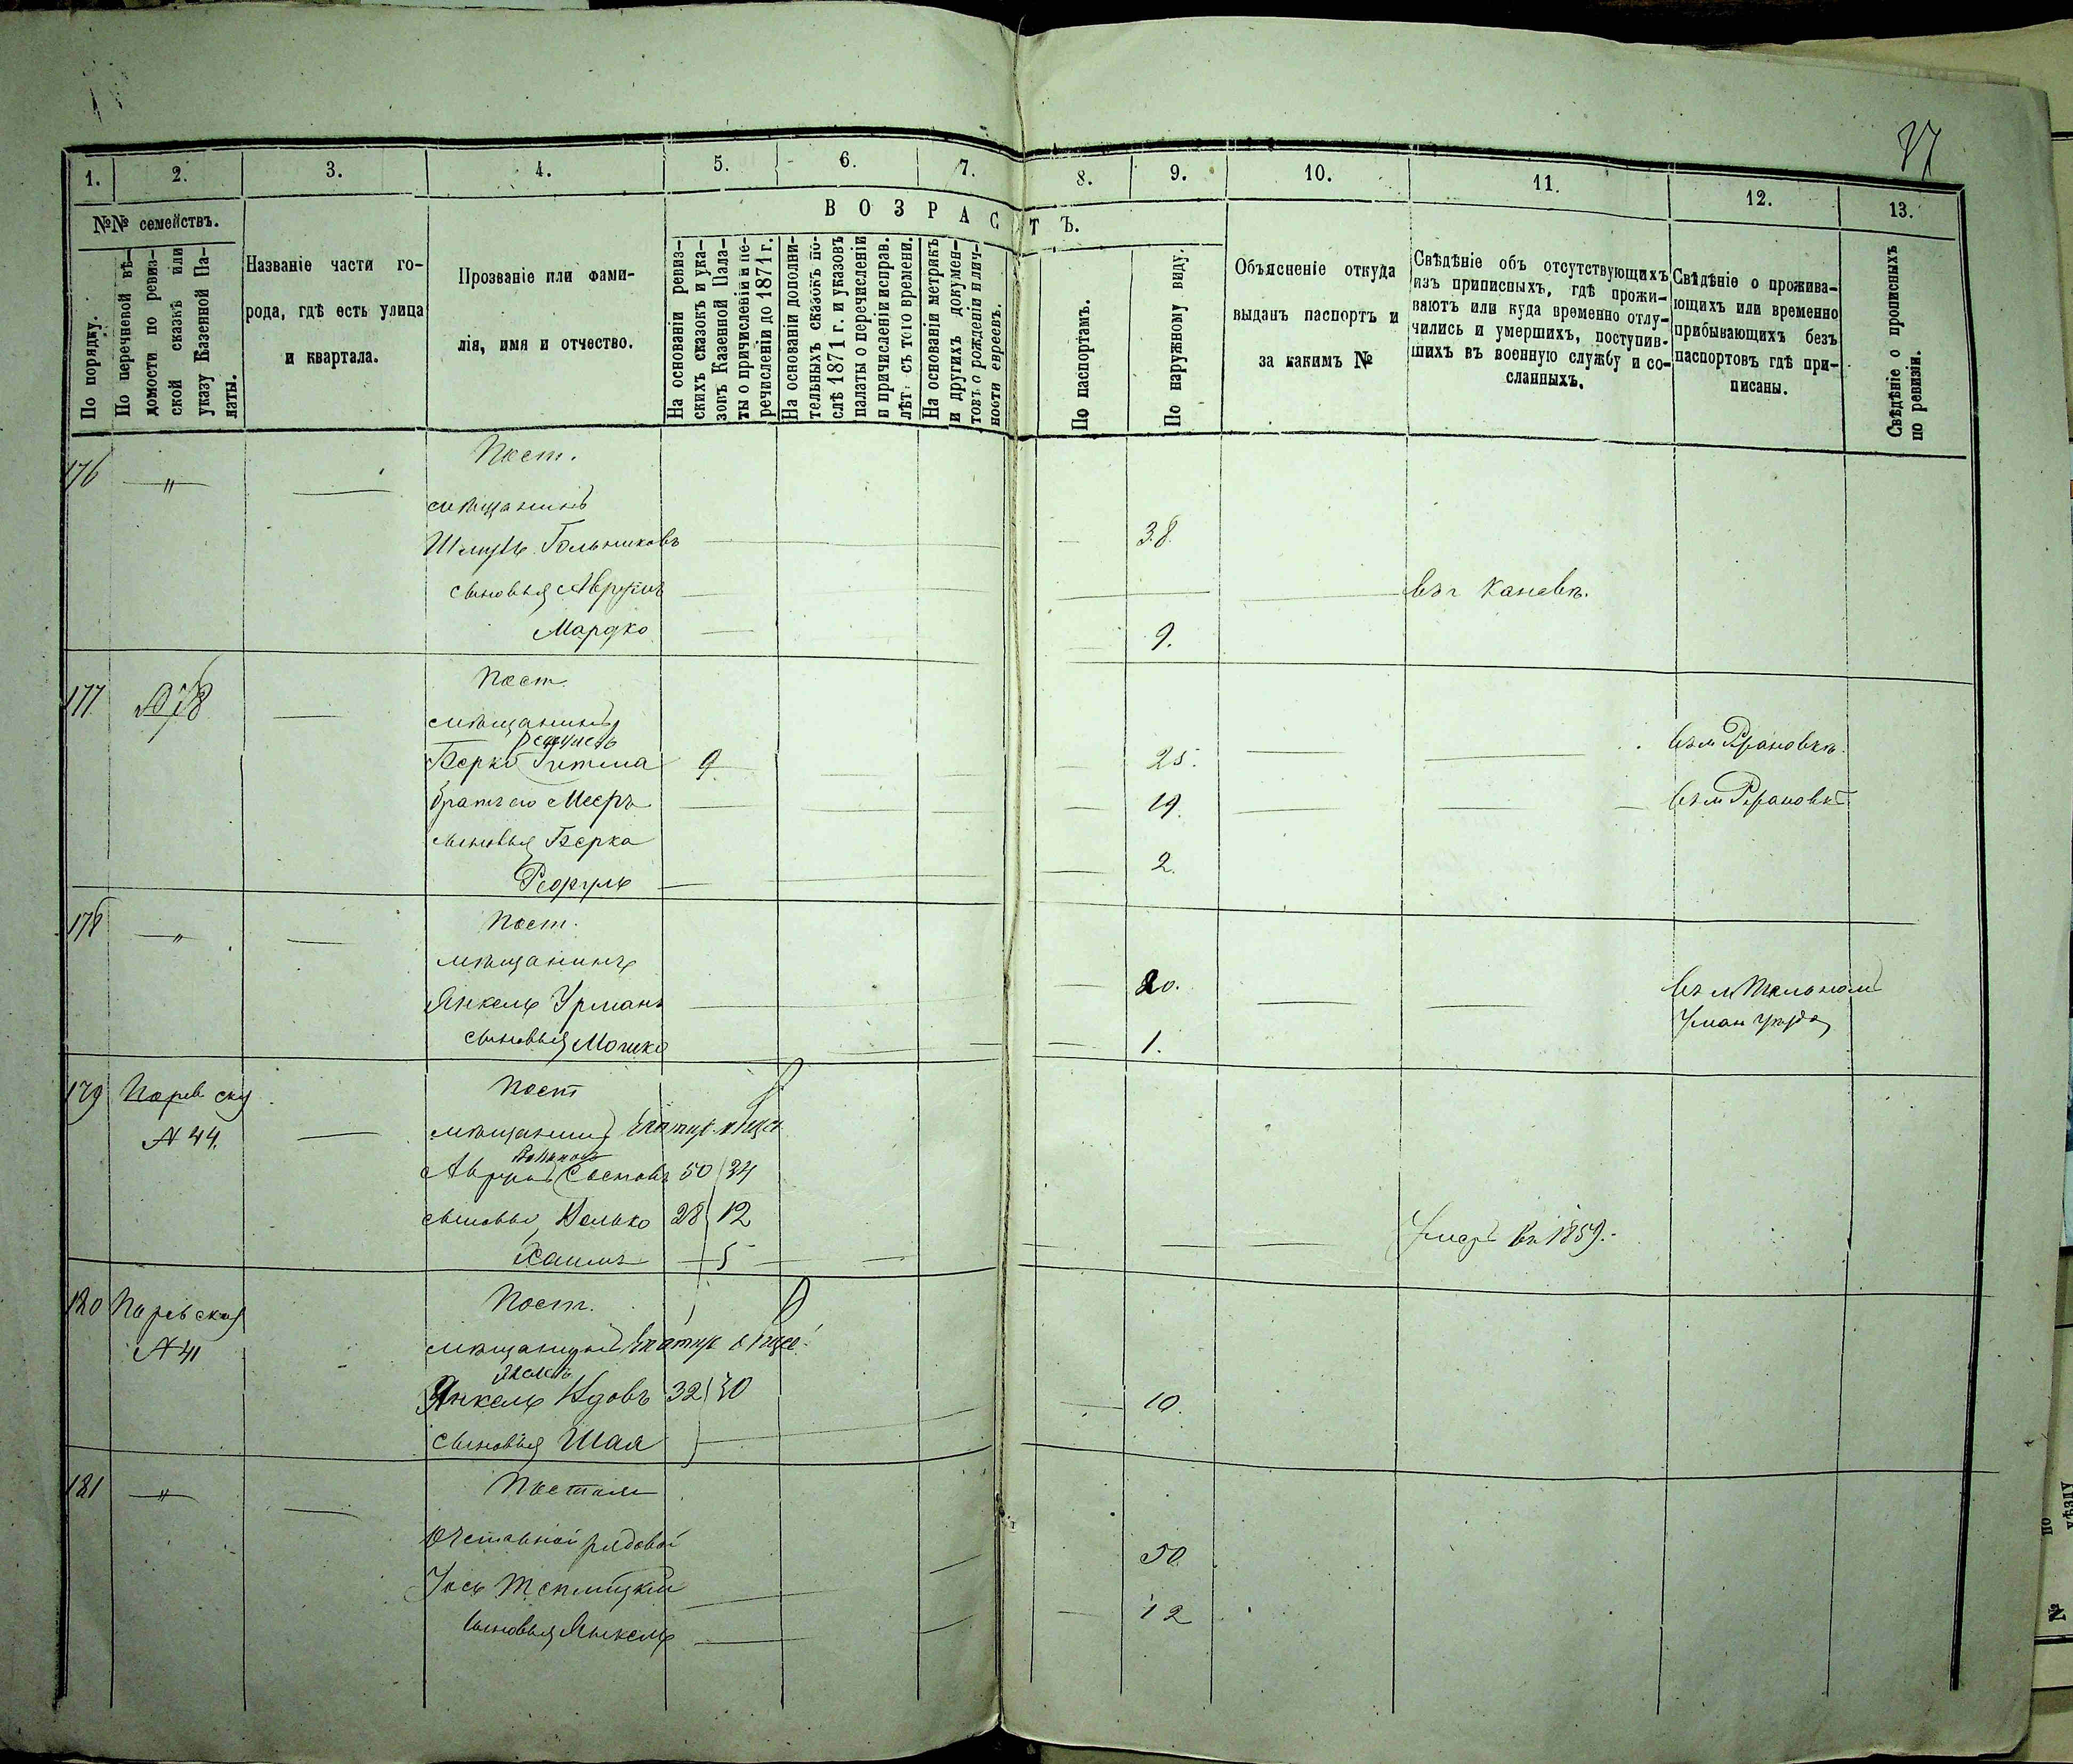 37
1. 2. 3. 4. 5. 6. 7. 8. 9. 10. 11. 12. 13.
№№ семействъ.
В О З Р А С Т Ъ.
По порядку.
По перечневой вѣ-
домости по ревиз-
ской сказкѣ или
указу Казенной Па-
латы.
Названіе части го-
рода, гдѣ есть улица
и квартала.
Прозваніе или фами-
лія, имя и отчество.
На основаніи ревиз-
скихъ сказокъ и ука-
зовъ Казенной Пала-
ты о причисленіи и пе-
речисленіи до 1871 г.
На основаніи дополни-
тельныхъ сказокъ по-
слѣ 1871 г. и указовъ
палаты о перечисленіи
и причисленіи исправ.
лѣт. съ того времени.
На основаніи метрикъ
и другихъ докумен-
товъ о рожденіи и лич-
ности евреевъ.
По паспортамъ.
По наружному виду.
Объясненіе откуда
выданъ паспортъ и
за какимъ №
Свѣдѣніе объ отсутствующихъ
изъ приписныхъ, гдѣ прожи-
ваютъ или куда временно отлу-
чились и умершихъ, поступив-
шихъ въ военную службу и со-
сланныхъ.
Свѣдѣніе о прожива-
ющихъ или временно
прибывающихъ безъ
паспортовъ гдѣ при-
писаны.
Свѣдѣніе о прописныхъ
по ревизіи.
176 — " — Пост.
мѣщанинъ
Шмуль Гольниковъ 38.
сыновья Аврумъ въ г Каневѣ.
Мардко 9.
177 Пост.
мѣщанинъ
Берко Гитма 9 25.
братъ его Мееръ 19.
сыновья Берка
2.
178 — " — Пост.
мѣщанинъ
Янкель Урманъ 20.
Уман уезда
сыновья Мошко 1.
179 Пост
№ 44. мѣщанинъ
Аврумъ 50 34
сыновья 28 12
Хаимъ 5 Умеръ въ 1859.
180 Пост.
№ 41 мѣщанинъ
Янкель 32 30
сыновья Шая 10.
181 — " —
Отставной рядовой
Іось Теплицкій 50.
сыновья Янкель 12
№
по
уѣзду